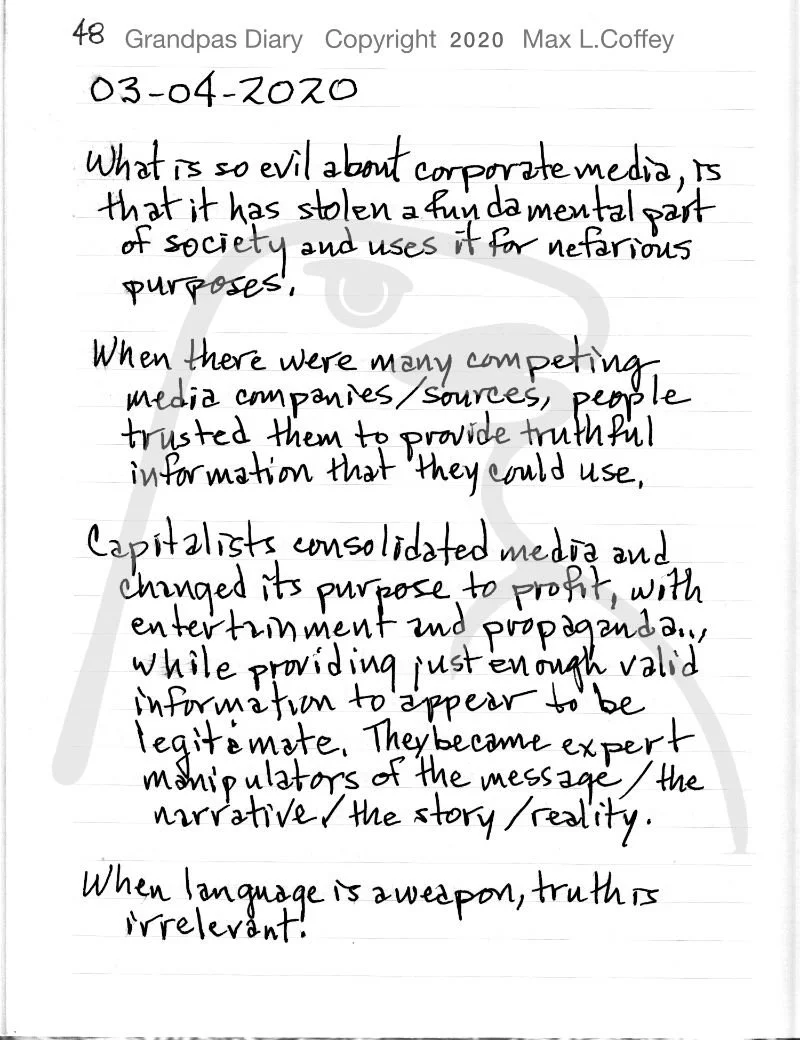 48 Grandpas Diary Copyright 2020 Max L.Coffey
03-04-2020
What is so evil about corporate media, is
that it has stolen a fundamental part
of society and uses it for nefarious
purposes!
When there were many competing
media companies/sources, people
trusted them to provide truthful
information that they could use.
Capitalists consolidated media and
changed its purpose to profit, with
entertainment and propaganda..,
while providing just enough valid
information to appear to be
legitimate. They became expert
manipulators of the message/the
narrative/the story/reality.
When language is a weapon, truth is
irrelevant!